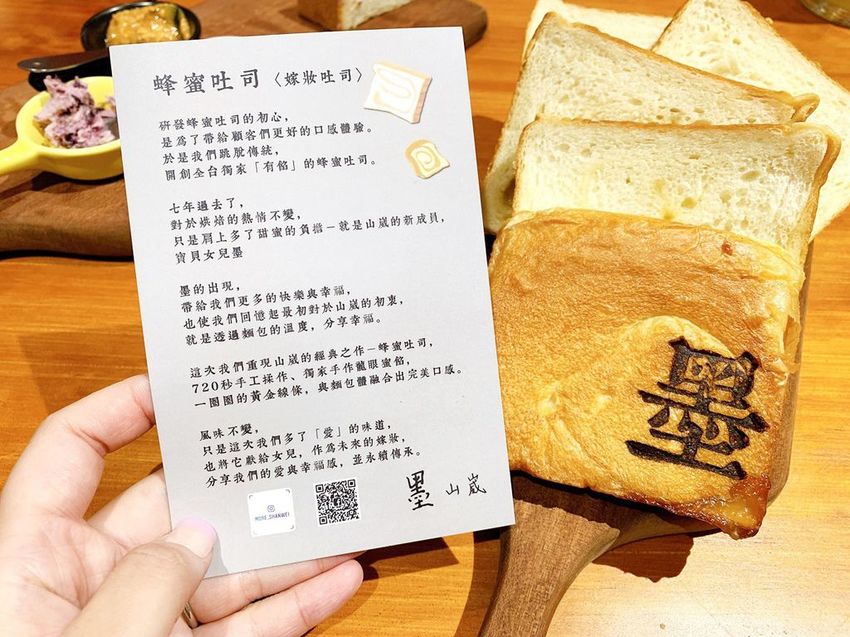 蜂蜜吐司〈嫁妝吐司〉
研發蜂蜜吐司的初心，
是為了帶給顧客們更好的口感體驗。
於是我們跳脫傳統，
開創全台獨家「有餡」的蜂蜜吐司。
七年過去了，
對於烘焙的熱情不變，
只是肩上多了甜蜜的負擔－就是山崴的新成員，
寶貝女兒墨
墨的出現，
帶給我們更多的快樂與幸福，
也使我們回憶起最初對於山崴的初衷，
就是透過麵包的溫度，分享幸福。
這次我們重現山崴的經典之作－蜂蜜吐司，
720秒手工揉作、獨家手作龍眼蜜餡，
一圈圈的黃金線條，與麵包體融合出完美口感。
風味不變，
只是這次我們多了「愛」的味道，
也將它獻給女兒，作為未來的嫁妝，
分享我們的愛與幸福感，並永續傳承。
MORE_SHANWEI
墨 山崴
墨